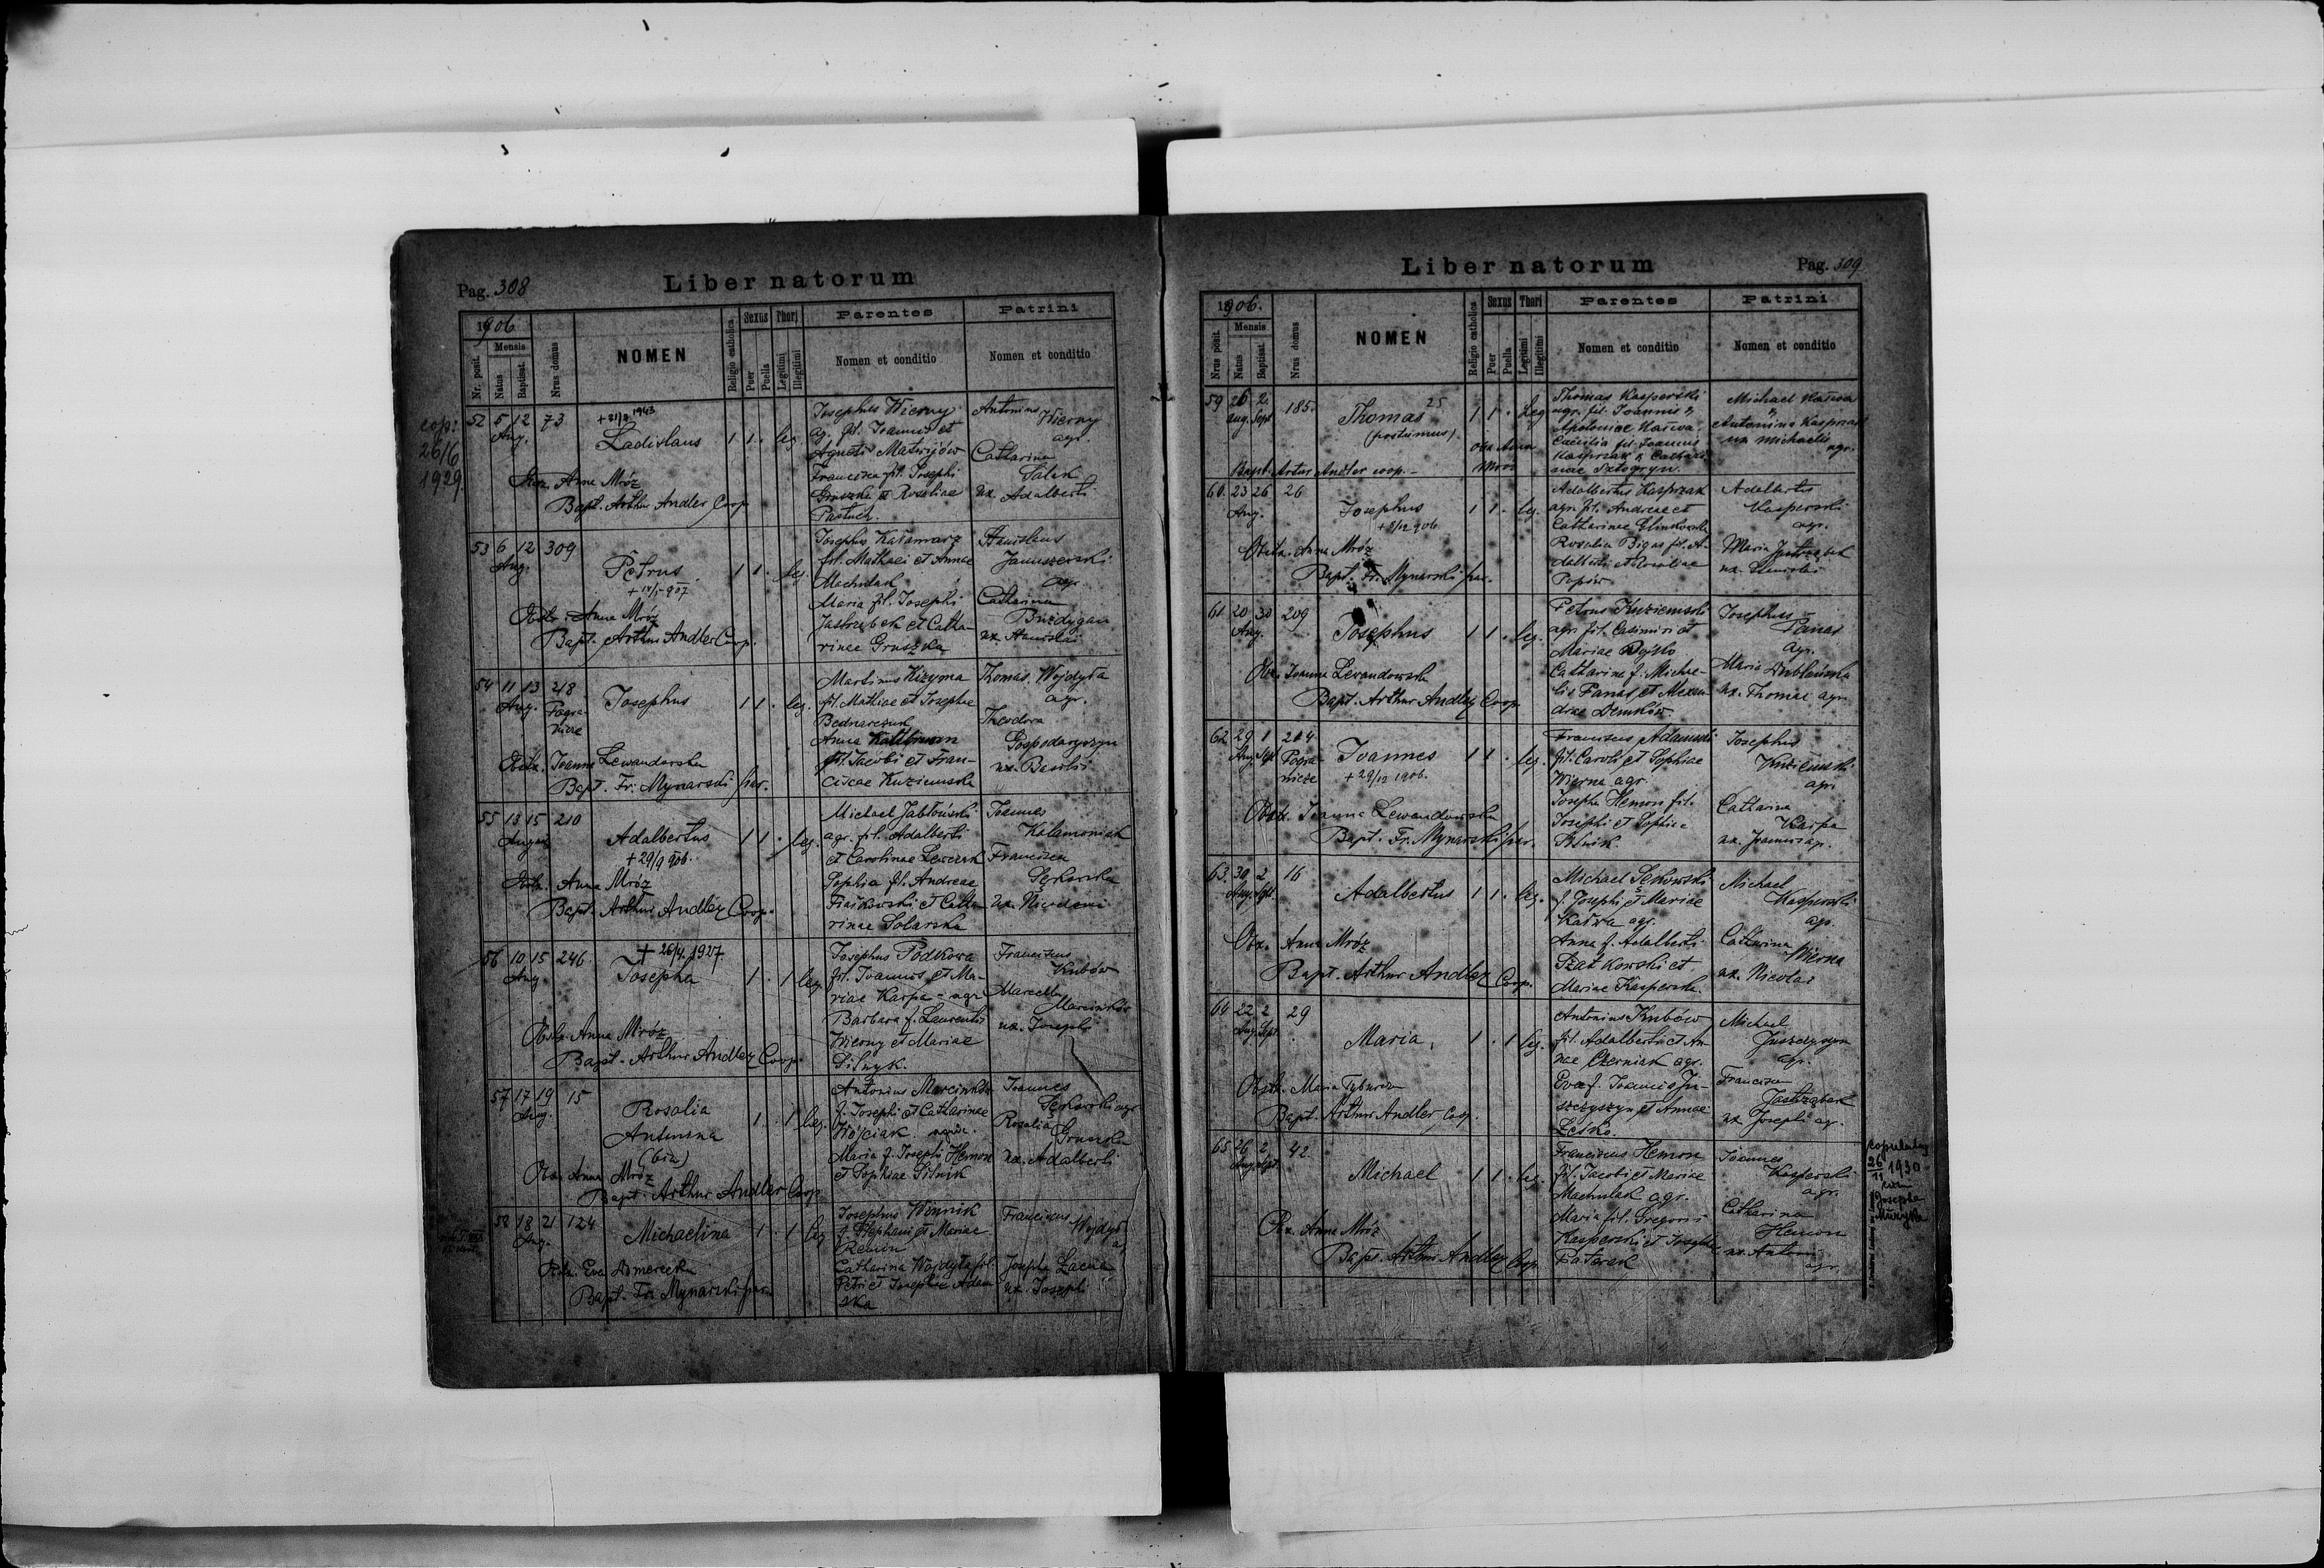 Pag. 308
Liber natorum
1906
Nr. posit.
Mensis
Natus
Baptisat.
Nrus domus
NOMEN
Religio catholica
Sexus
Puer
Puella
Thori
Legitimi
Illegitimi
Parentes
Nomen et conditio
Patrini
Nomen et conditio
cop:
26/6
1929
52 5 12 73
Aug.
1943
Ladislaus
1 1 . leg.
Josephus Wierny
agr. fil. Joannis et
Agnetis Matwijów
Francisca fil. Josephi
Gruszka et Rosaliae
Pastuch.
Antonius
Wierny
agr.
Catharina
Salak
ux. Adalberti
Obstx. Anna Mróz
Bapt. Arthur Andler Coop
53 6 12 309
Aug.
Petrus
1 1 . leg.
Josephus Kałamarz
fil. Mathaei et Annae
Machulak
Maria fil. Josephi
Jastrzębek et Catha-
rinae Gruszka
Stanislaus
Januszewski
agr.
Catharina
Buzdygan
ux. Stanislai
Obstx. Anna Mróz
Bapt. Arthur Andler Coop.
54 11 13 218
Aug. Pogra-
nicze
Josephus
1 1 . leg.
Martinus Kizyma
fil. Mathiae et Josephae
Bednarczuk
Anna
fil. Jacobi et Fran-
ciscae Kuziemska
Thomas Wojdyła
agr.
Theodora
Gospodaryszyn
ux. Basilii
Obstx. Joanna Lewandowska
Bapt. Fr. Mynarski par.
55 13 15 210
Augusti
Adalbertus
+ 29/9 906.
1 1 . leg.
Michael Jabłoński
agr. fil. Adalberti
et Carolinae Lewczak
Sophia fil. Andreae
Fiałkowski et Catha-
rinae Solarska
Joannes
Kalamoniak
Francisca
Sękowska
ux. Nicodemi
Obstx. Anna Mróz
Bapt. Arthur Andler Coop.
56 10 15 246
Aug.
+ 26/4. 1927
Josepha
1 . 1 leg.
Josephus Podkowa
fil. Joannis et Ma-
riae Karpa - agr
Barbara f. Laurentii
Wierny et Mariae
Silnyk.
Franciscus
Kubów
Marcella
Marcinków
ux. Josephi
Obstx. Anna Mróz
Bapt. Arthur Andler Coop.
57 17 19 15
Aug.
Rosalia
Antonina
(bin)
1 . 1 leg.
Antonius Marcinków
f. Josephi et Catharinae
Wójciak agric.
Maria f. Josephi Hemon
et Sophiae Silnik
Joannes
Sękowski agr
Rosalia
Gruszka
ux. Adalberti
Obx. Anna Mróz
Bapt. Arthur Andler Coop
58 18 21 124
Aug.
Michaelina
1 . 1 leg
Josephus Winnik
f. Stephani et Mariae
Catharina Wojdyła fil.
Petri et Josephae Adam-
ska
Franciscus Wojdyła
Josepha
ux. Josephi
Obstx. Eva
Bapt. Fr. Mynarski par.
Liber natorum
Pag. 309
1906.
Nrus posit.
Mensis
Natus
Baptisat.
Nrus domus
NOMEN
Religio catholica
Sexus
Puer
Puella
Thori
Legitimi
Illegitimi
Parentes
Nomen et conditio
Patrini
Nomen et conditio
59 26 2. 185.
aug. Sept
Thomas 25
(postumus)
1 1 . Leg
Obx Anna
Mróz
Thomas Kasperski
agr. fil. Joannis &
Apoloniae Kaśwa.
Caecilia fil. Joannis
Kasprzak & Catha-
rinae
Michael Kaśwa
&
Antonina Kasprzak
ux Michaelis
agr.
Bapt. Artur Andler coop. -
60. 23 26 26
Aug.
Josephus
+ 8/12 906
1 1 . leg.
Adalbertus Kasprzak
agr. fil. Andreae et
Catharinae Glinkowska
Rosalia Bigas fil. A-
dalberti et Rosaliae
Popów
Adalbertus
Kasperski
agr.
Maria Jastrząbek
ux. Stanislai
Obstx. Anna Mróz
Bapt. Fr. Mynarski par.
61 20 30 209
Aug.
Josephus
1 1 . leg.
Petrus Kuziemski
agr. fil. Casimiri et
Mariae
Catharina f. Michae-
lis Panas et Alexan-
drae Demków.
Josephus
Panas
agr.
Maria Dublańska
ux. Thomae agr.
Obx. Joanna Lewandowska
Bapt. Arthur Andler Coop.
62 29 1 204
Aug. Sept Pogra-
nicze
Joannes
+ 29/12 1906.
1 1 . leg.
Franciscus Adamski
fil. Caroli et Sophiae
Wierna agr.
Josepha Hemon fil.
Josephi et Sophiae
Silnik.
Josephus
Kuziemski
agr.
Catharina
Karpa
ux. Joannis agr.
Obstx. Joanna Lewandowska
Bapt. Fr. Mynarski par.
63. 30 2 16
Aug. Sept.
Adalbertus
1 1 . leg.
Michael Sękowski
f. Josephi et Mariae
Kaśwa agr.
Anna f. Adalberti
Szatkowski et
Mariae Kasperska.
Michael
Kasperski
agr.
Catharina
Wierna
ux. Nicolai
Obx. Anna Mróz
Bapt. Arthur Andler Coop.
64 22 2 29
Aug. Sept.
Maria,
1 . 1 leg.
Antonius Kubów
fil. Adalberti et An-
nae Czerniak agr.
Eva f. Joannis Ju-
szczyszyn et Annae
Leśko.
Michael
Juszczyszyn
agr.
Francisca
Jastrząbek
ux. Josephi agr.
Obstx. Maria
Bapt. Arthur Andler Coop.
65 26 2 42
Aug. Sept.
Michael
1 1 . leg.
Franciscus Hemon
fil. Jacobi et Mariae
Machulak agr.
Maria fil. Gregorii
Kasperski et Josepha
Joannes
Kasperski
agr.
Catharina
Hemon
ux. Antonii
agr.
Obx. Anna Mróz
Bapt. Arthur Andler Coop.
copulatus
26/11 1930
cum
Josepha
Muzyka